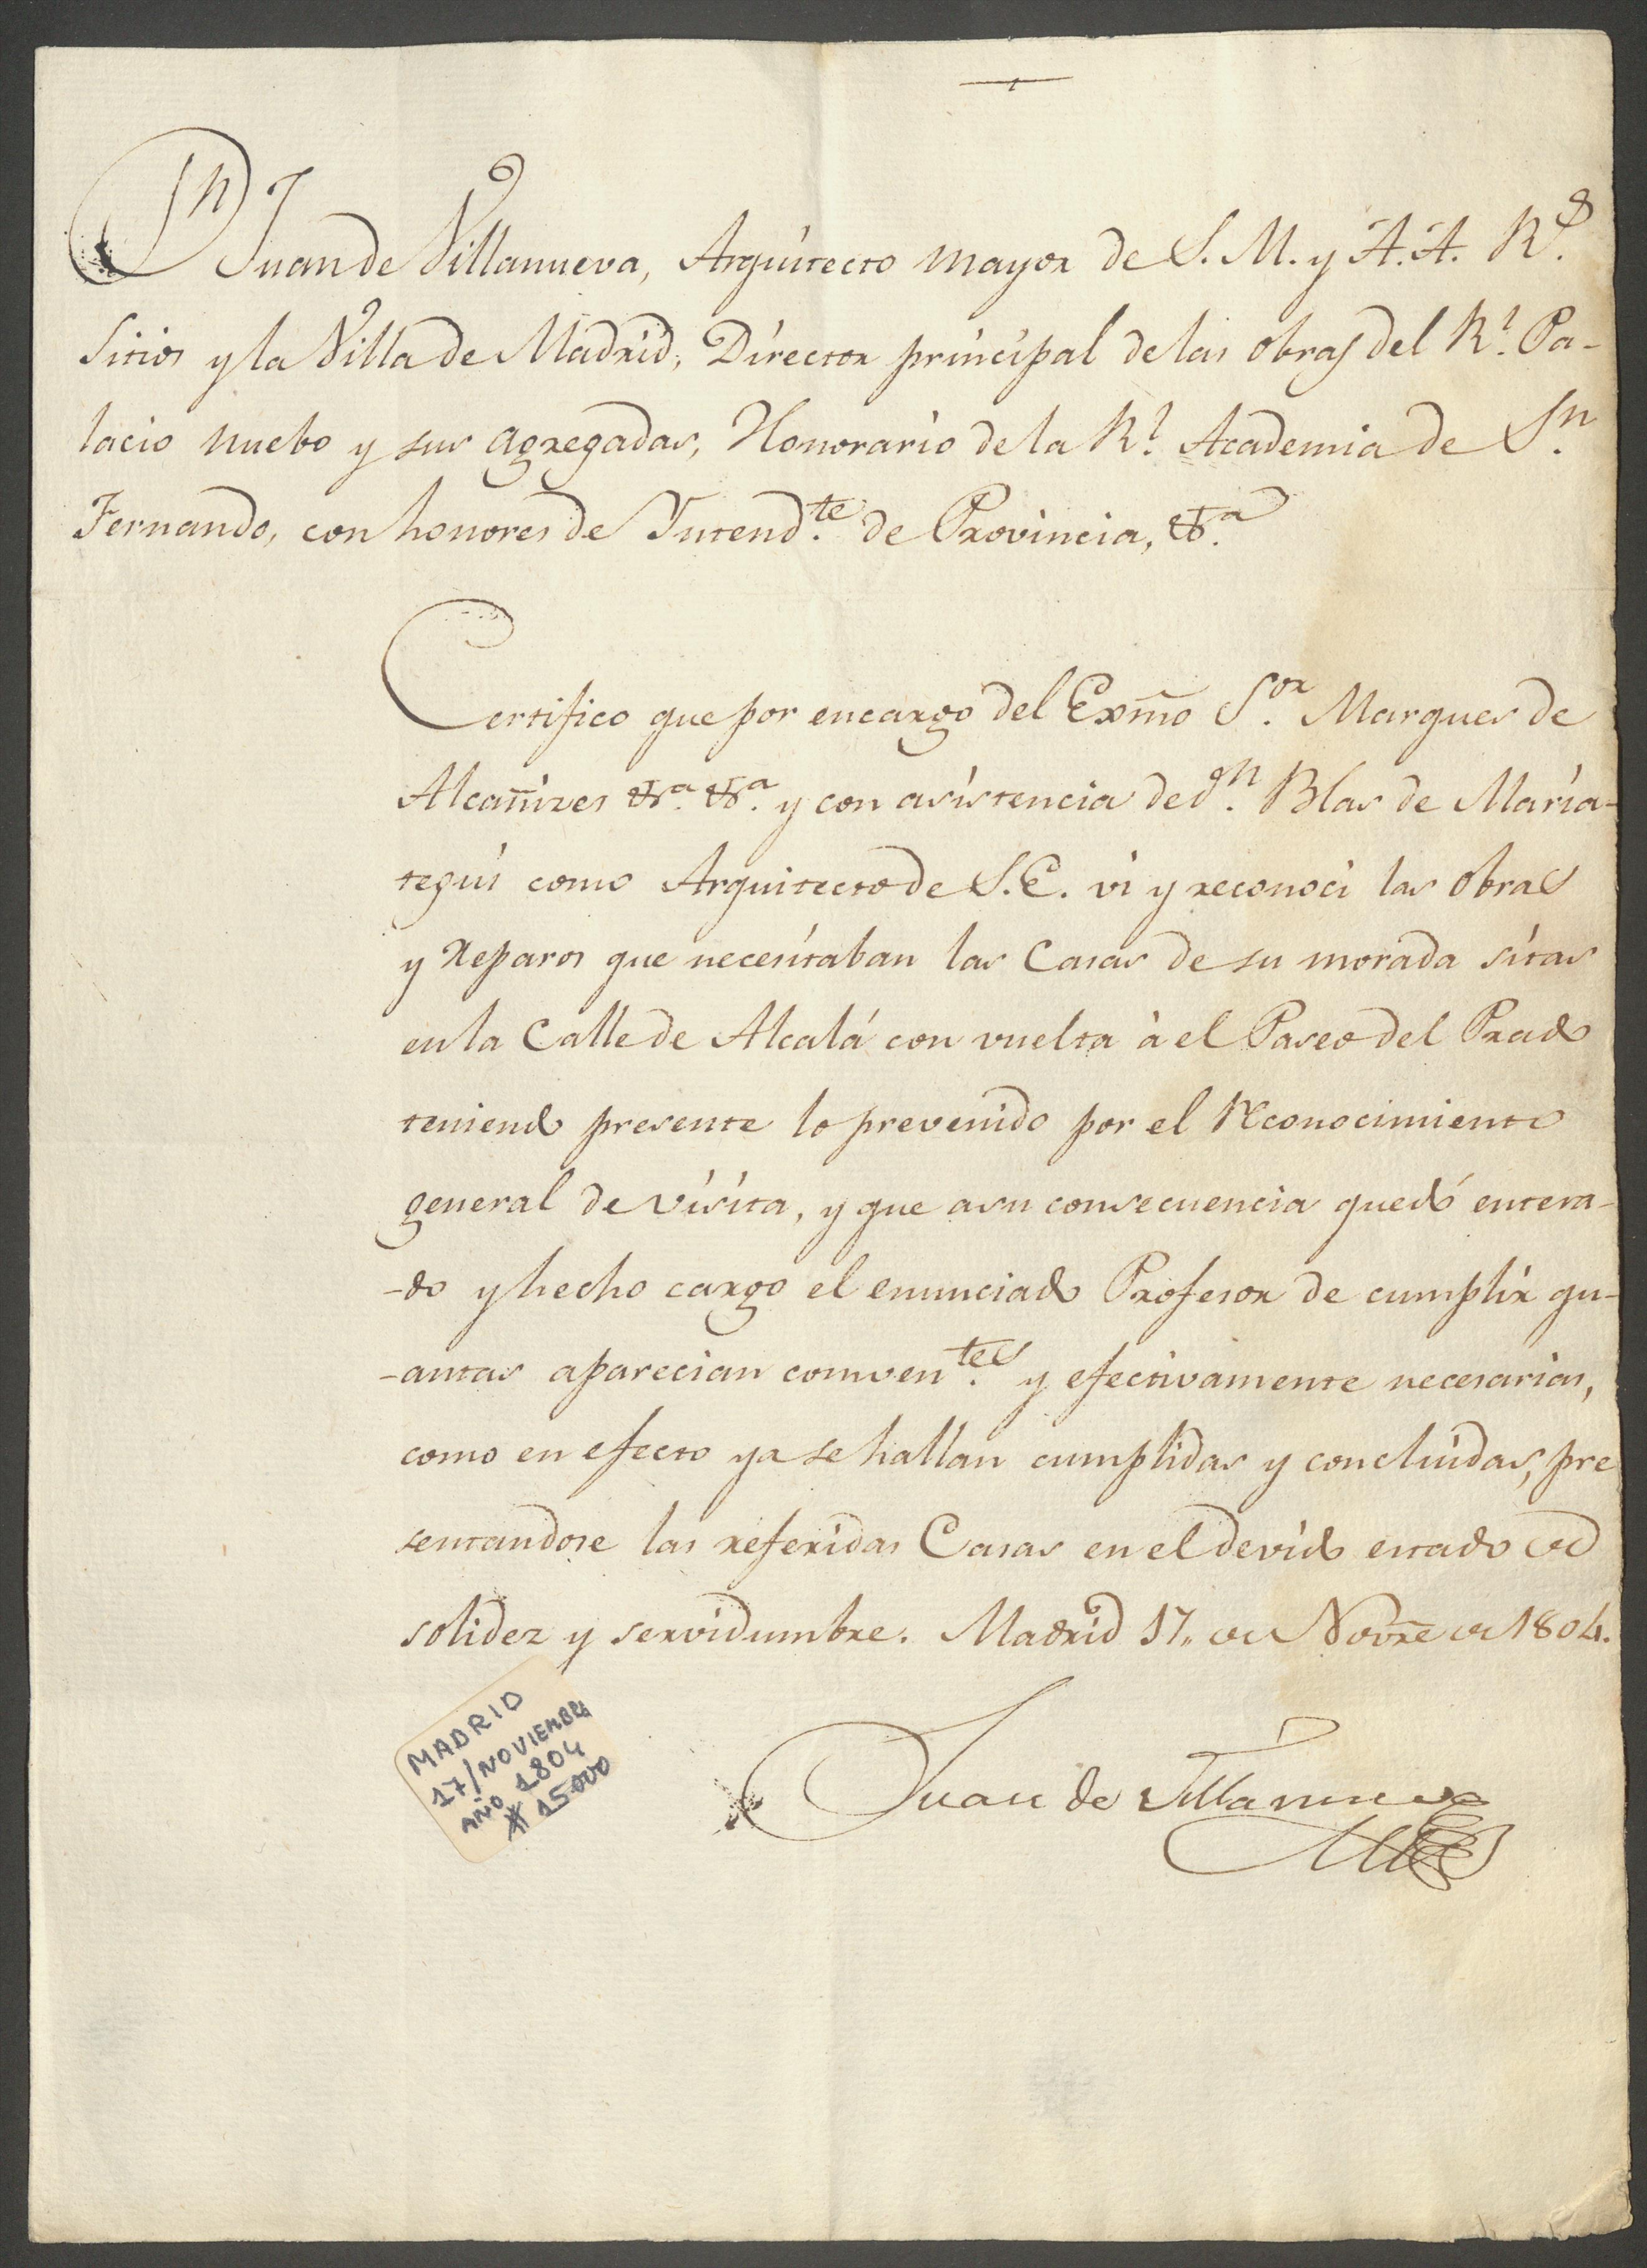 Dn Juan de Villanueva, Arquitecto mayor de S. M. y A. A. Rs.
Sitios y la Villa de Madrid, Director principal de las obras del Rl. Pa-
lacio nuebo y sus agregadas, Honorario de la Rl. Academia de Sn.
Fernando, con honores de Yntendte. de Provincia, &a.
Certifico que por encargo del Exmo Sor. Marques de
Alcañizes &a. &a. y con asistencia de dn. Blas de Maria-
tegui como Arquitecto de S. E. vi y reconoci las obras
y Reparos que necesitaban las Casas de su morada sitas
en la Calle de Alcalá con vuelta à el Paseo del Prado
teniendo presente lo prevenido por el Reconocimiento
general de visita, y que a su consecuencia quedó entera-
-do y hecho cargo el enunciado Profesor de cumplir qu-
-antas aparecian conventes. y efectivamente necesarias,
como en efecto ya se hallan cumplidas y concluidas, pre
sentandose las referidas Casas en el devido estado de
solidez y servidumbre. Madrid 17,, de Novre de 1804.
Juan de Villanueva
MADRID
17/NOVIEMBRE
AÑO 1804
15.000